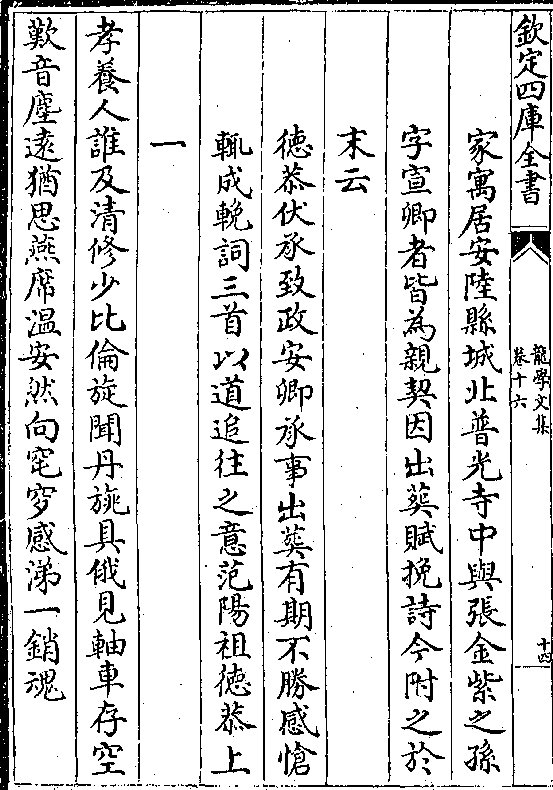 欽定四庫全書
龍學文集
卷十六
十四
家寓居安陸縣城北普光寺中與張金紫之孫
字宣卿者皆為親契因出葬賦挽詩今附之於
末云
德恭伏承致政安卿承事出葬有期不勝感愴
輒成輓詞三首以道追往之意范陽祖德恭上
一
孝養人誰及清修少比倫旋聞丹旐具俄見軸車存空
歎音塵遠猶思燕席溫安然向窀穸感涕一銷魂